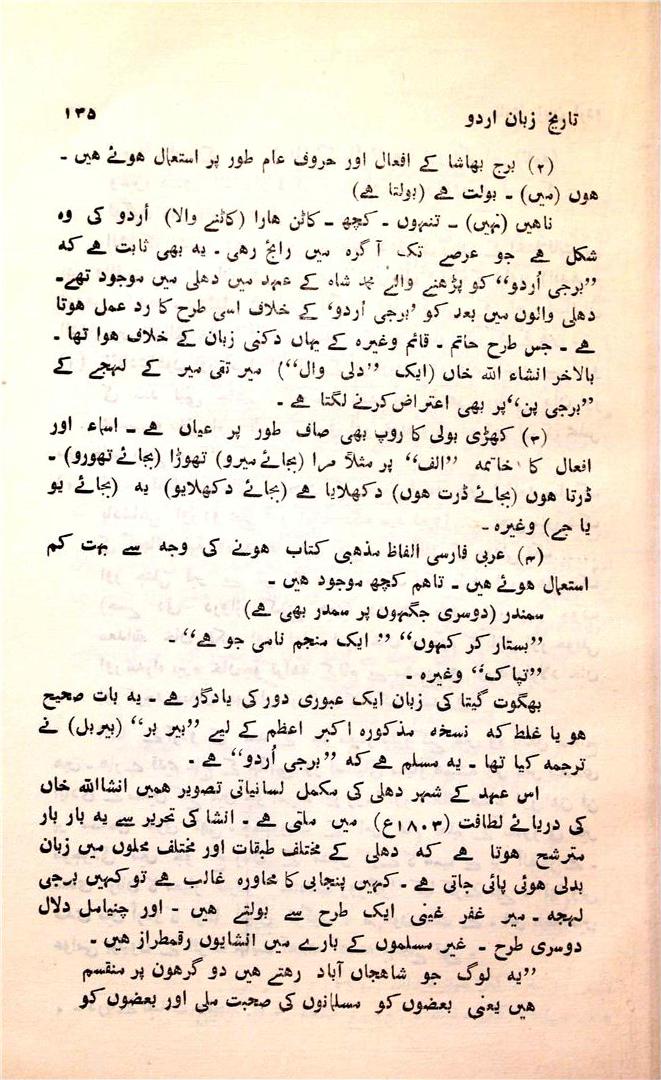 تاریخ زبان اردو ۱۳۵
(۲) برج بھاشا کے افعال اور حروف عام طور پر استعمال ہوئے ہیں ۔
ہوں (میں) ۔ بولت ہے (بولتا ہے)
ناہیں (نہیں) ۔ تنہوں ۔ کچھ ۔ کاٹن ہارا (کاٹنے والا) اُردو کی وہ
شکل ہے جو عرصے تک آگرہ میں رایج رہی ۔ یہ بھی ثابت ہے کہ
”برجی اُردو“ کو پڑھنے والے محمد شاہ کے عہد میں دہلی میں موجود تھے۔
دہلی والوں میں بعد کو ’برجی اردو‘ کے خلاف اسی طرح کا رد عمل ہوتا
ہے ۔ جس طرح حاتم ۔ قائم وغیرہ کے یہاں دکنی زبان کے خلاف ہوا تھا ۔
بالاخر انشاء اللہ خاں (ایک ”دلی وال“) میر تقی میر کے لہجے کے
”برجی پن“ پر بھی اعتراض کرنے لگتا ہے ۔
(۳) کھڑی بولی کا روپ بھی صاف طور پر عیاں ہے ۔ اسماء اور
افعال کا خاتمہ ”الف“ پر مثلاً مرا (بجائے میرو) تھوڑا (بجائے تھورو) ۔
ڈرتا ہوں (بجائے ڈرت ہوں) دکھلایا ہے (بجائے دکھلایو) یہ (بجائے یو
یا جے) وغیرہ ۔
(۴) عربی فارسی الفاظ مذہبی کتاب ہونے کی وجہ سے بہت کم
استعمال ہوئے ہیں ۔ تاہم کچھ موجود ہیں ۔
سمندر (دوسری جگہوں پر سمدر بھی ہے)
”بستار کر کہوں“ ”ایک منجم نامی جو ہے“ ۔
”تپاک“ وغیرہ ۔
بھگوت گیتا کی زبان ایک عبوری دور کی یادگار ہے ۔ یہ بات صحیح
ہو یا غلط کہ نسخہ مذکورہ اکبر اعظم کے لیے ”بیر بر“ (بیربل) نے
ترجمہ کیا تھا ۔ یہ مسلم ہے کہ ”برجی اُردو“ ہے ۔
اس عہد کے شہر دہلی کی مکمل لسانیاتی تصویر ہمیں انشااللہ خاں
کی دریائے لطافت (۱۸۰۳ع) میں ملتی ہے ۔ انشا کی تحریر سے یہ بار بار
مترشح ہوتا ہے کہ دہلی کے مختلف طبقات اور مختلف محلوں میں زبان
بدلی ہوئی پائی جاتی ہے ۔ کہیں پنجابی کا محاورہ غالب ہے تو کہیں برجی
لہجہ ۔ میر غفر غینی ایک طرح سے بولتے ہیں ۔ اور چنیامل دلال
دوسری طرح ۔ غیر مسلموں کے بارے میں انشایوں رقمطراز ہیں ۔
”یہ لوگ جو شاہجاں آباد رہتے ہیں دو گرھون پر منقسم
ہیں یعنی بعضوں کو مسلمانوں کی صحبت ملی اور بعضوں کو